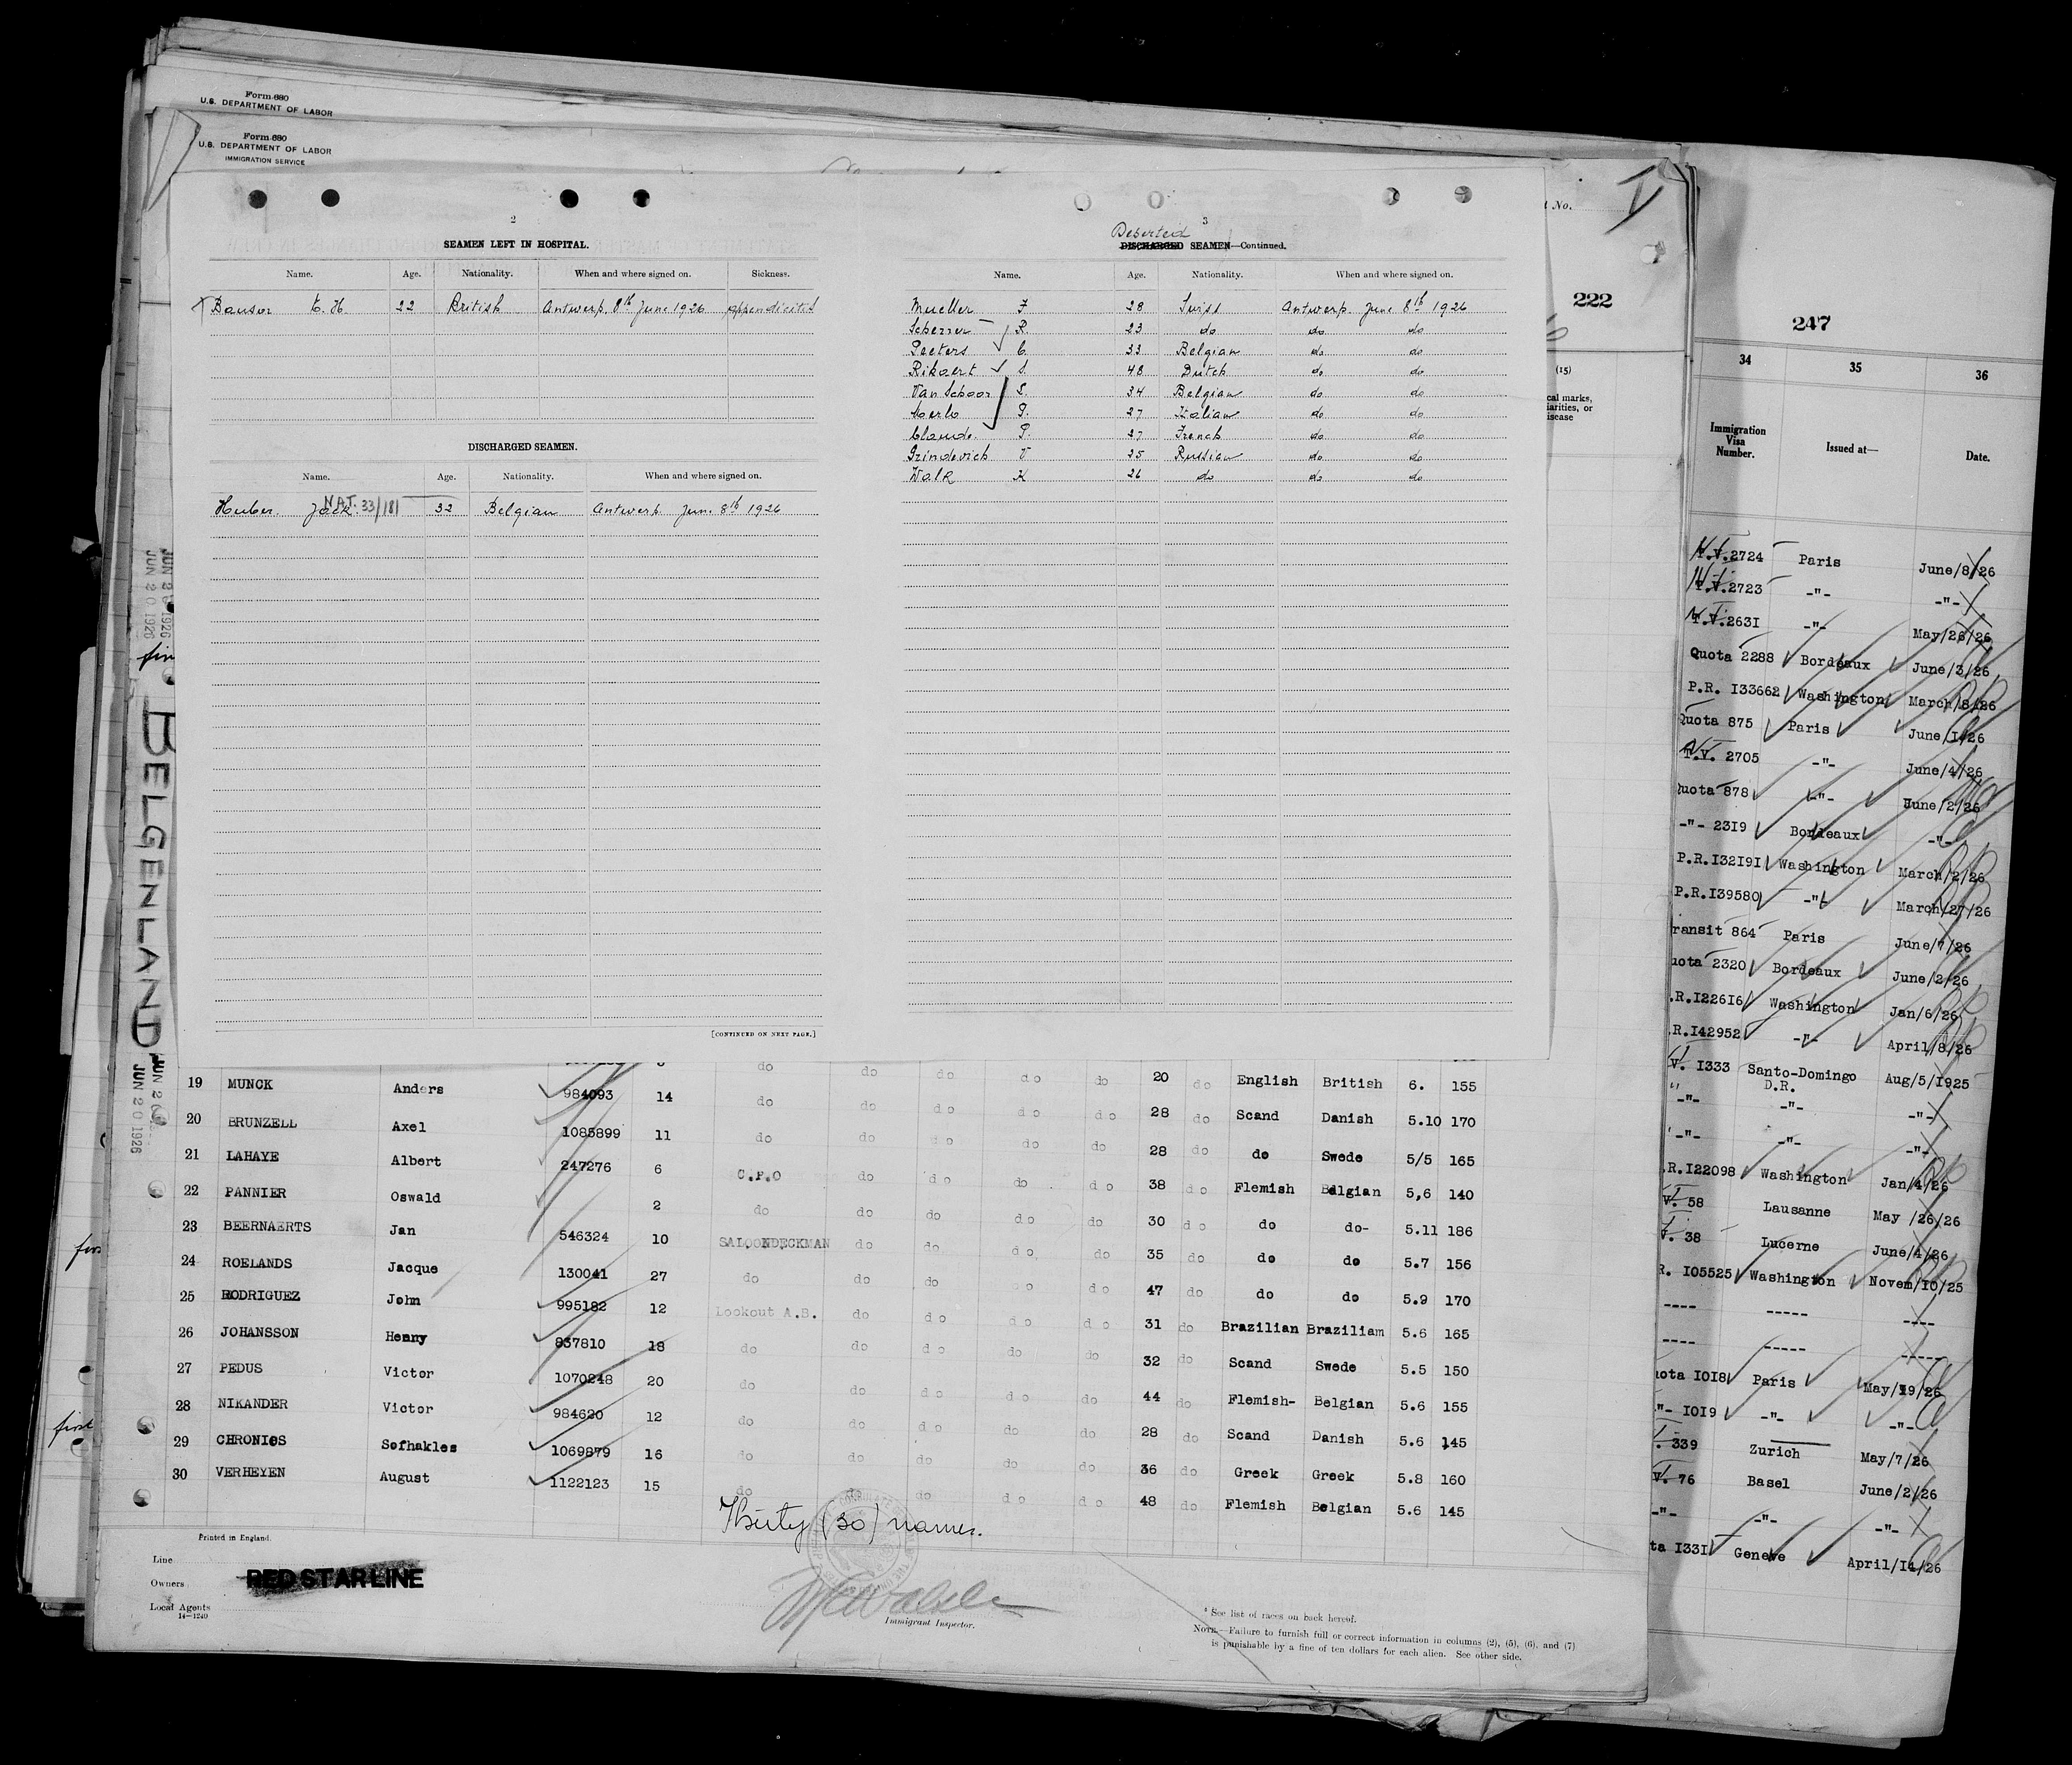 Form 680
U.S. DEPARTMENT OF LABOR
Form 680
U.S. DEPARTMENT OF LABOR
IMMIGRATION SERVICE
2
SEAMEN LEFT IN HOSPITAL.
Name. Age. Nationality. When and where signed on. Sickness.
E. H 22 British Antwerp. 8th June 1926 appendicitis
DISCHARGED SEAMEN.
Name. Age. Nationality. When and where signed on.
Huber. Jack. NAT. 33/181 32 Belgian Antwerp June 8th 1926
[CONTINUED ON NEXT PAGE.]
3
Deserted
DISCHARGED SEAMEN—Continued.
Name. Age. Nationality. When and where signed on.
Mueller F 28 Swiss Antwerp. June 8th 1926
Scherrer R. 23 do do do
Peeters C. 33 Belgian do do
Rikaert S. 48 Dutch do do
Van Schoor S. 34 Belgian do do
P. 27 Italian do do
Claude. P. 27 French do do
Grindevich V 25 Russian do do
Walk K 26 do do do
No.
222
(15)
cal marks,
iarities, or
isease
247
34 35 36
Immigration
Visa
Number.
Issued at—
Date.
T.V.2724 Paris June/8/26
T.V.2723 -"- -"-
T.V.2631 -"- May/26/26
Quota 2288 Bordeaux June/3/26
P.R. 133662 Washington March/8/26
Quota 875 Paris June/1/26
T.V. 2705 -"- June/4/26
uota 878 -"- June/2/26
-"- 2319 Bordeaux -"-
P.R.132191 Washington March/2/26
P.R.139580 -"- March/27/26
ransit 864 Paris June/7/26
uota 2320 Bordeaux June/2/26
.R.122616 Washington Jan/6/26
.R.142952 -"- April/8/26
V. 1333 Santo-Domingo Aug/5/1925
D.R.
-"- -"- -"-
-"- -"- -"-
.R.122098 Washington Jan/4/26
V. 58 Lausanne May /26/26
V. 38 Lucerne June/4/26
R. 105525 Washington Novem/10/25
---- ----- ----
---- ----- -----
uota 1018 Paris May/19/26
"- 1019 -"- -"-
. 339 Zurich May/7/26
V. 76 Basel June/2/26
-"- -"- -"-
ta 1331 Geneve April/14/26
JUN 20 1926
JUN 20 1926
BELGENLAND
JUN 20 1926
first
do do do do do 20 do English British 6. 155
19 MUNCK Anders 984093 14 do do do do do 28 do Scand Danish 5.10 170
20 BRUNZELL Axel 1085899 11 do do do do do 28 do do Swede 5/5 165
21 LAHAYE Albert 247276 6 C.P.O do do do do 38 do Flemish Belgian 5,6 140
22 PANNIER Oswald 2 do do do do do 30 do do do- 5.11 186
23 BEERNAERTS Jan 546324 10 SALOONDECKMAN do do do do 35 do do do 5.7 156
24 ROELANDS Jacque 130041 27 do do do do do 47 do do do 5.9 170
25 RODRIGUEZ John 995182 12 Lookout A.B. do do do do 31 do Brazilian Braziliam 5.6 165
26 JOHANSSON Henny 837810 18 do do do do do 32 do Scand Swede 5.5 150
27 PEDUS Victor 1070248 20 do do do do do 44 do Flemish- Belgian 5.6 155
28 NIKANDER Victor 984620 12 do do do do do 28 do Scand Danish 5.6 145
29 CHRONIOS Sofhakles 1069879 16 do do do do do 36 do Greek Greek 5.8 160
30 VERHEYEN August 1122123 15 do do do do do 48 do Flemish Belgian 5.6 145
Thirty (30) names.
Printed in England.
Line
Owners
RED STAR LINE
Local Agents
14—1240
Immigrant Inspector.
* See list of races on back hereof.
NOTE.—Failure to furnish full or correct information in columns (2), (5), (6), and (7)
is punishable by a fine of ten dollars for each alien. See other side.